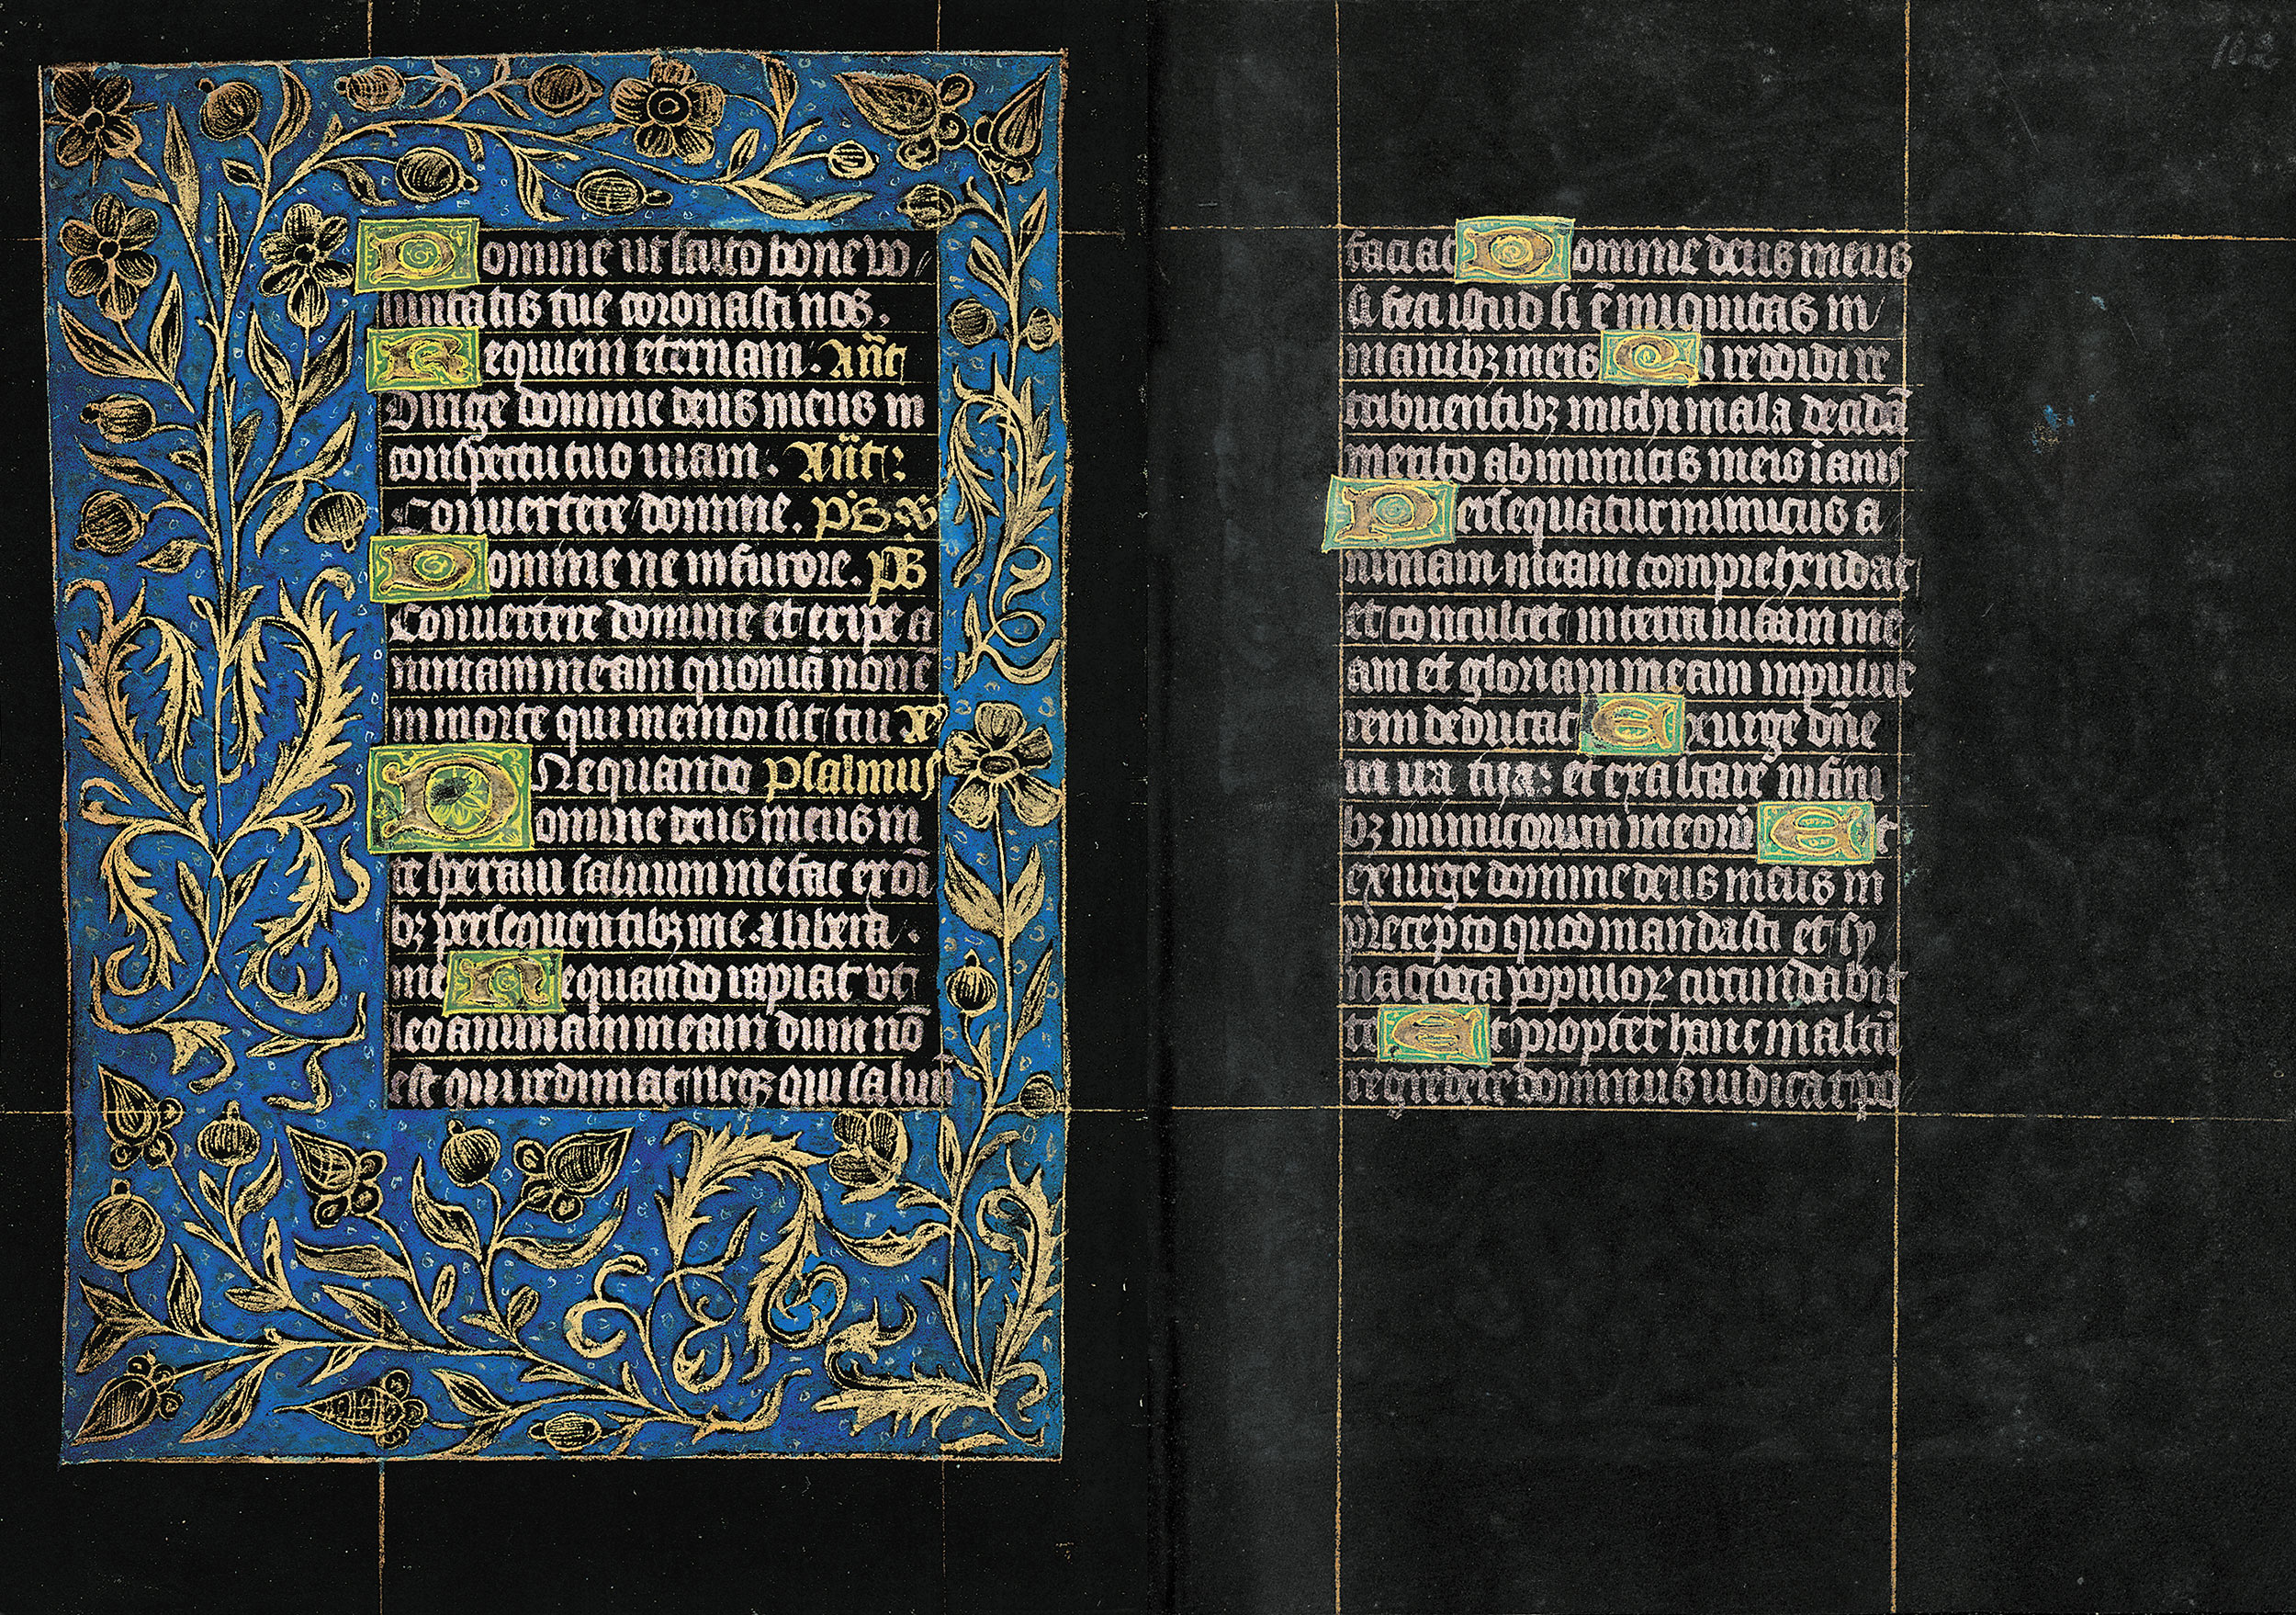 Domine ut scuto bone vo
luntatis tue coronasti nos.
Requiem eternam. Añt
Dirige domine deus meus in
conspectu tuo viam. Añt:
Convertere domine. ps
Domine ne in furore. ps
Convertere domine et eripe a
nimam meam quoniā non ē
in morte qui memor sit tui
Nequando psalmus
Domine deus meus in
te speravi salvum me fac ex oī
bꝫ persequentibꝫ me ⁊ libera.
me Nequando rapiat ut
leo animam meam dum nō
est qui redimat neqꝫ qui salvū
162
faciat Domine deus meus
si feci istud si ē iniquitas in
manibꝫ meis Si reddidi re
tribuentibꝫ michi mala decidā
merito ab inimicis meis īanis
Persequatur inimicus a
nimam meam comprehendat
et conculcet in terra vitam me
am et gloriam meam in pulve
rem deducat Exurge dn̄e
in ira tua: et exaltare in fini
bꝫ inimicorum meorū Et
exurge domine deus meus in
precepto quod mandasti et sy
nagoga populoꝝ circumdabit
te Et propter hanc in altū
regredere dominus iudicat po